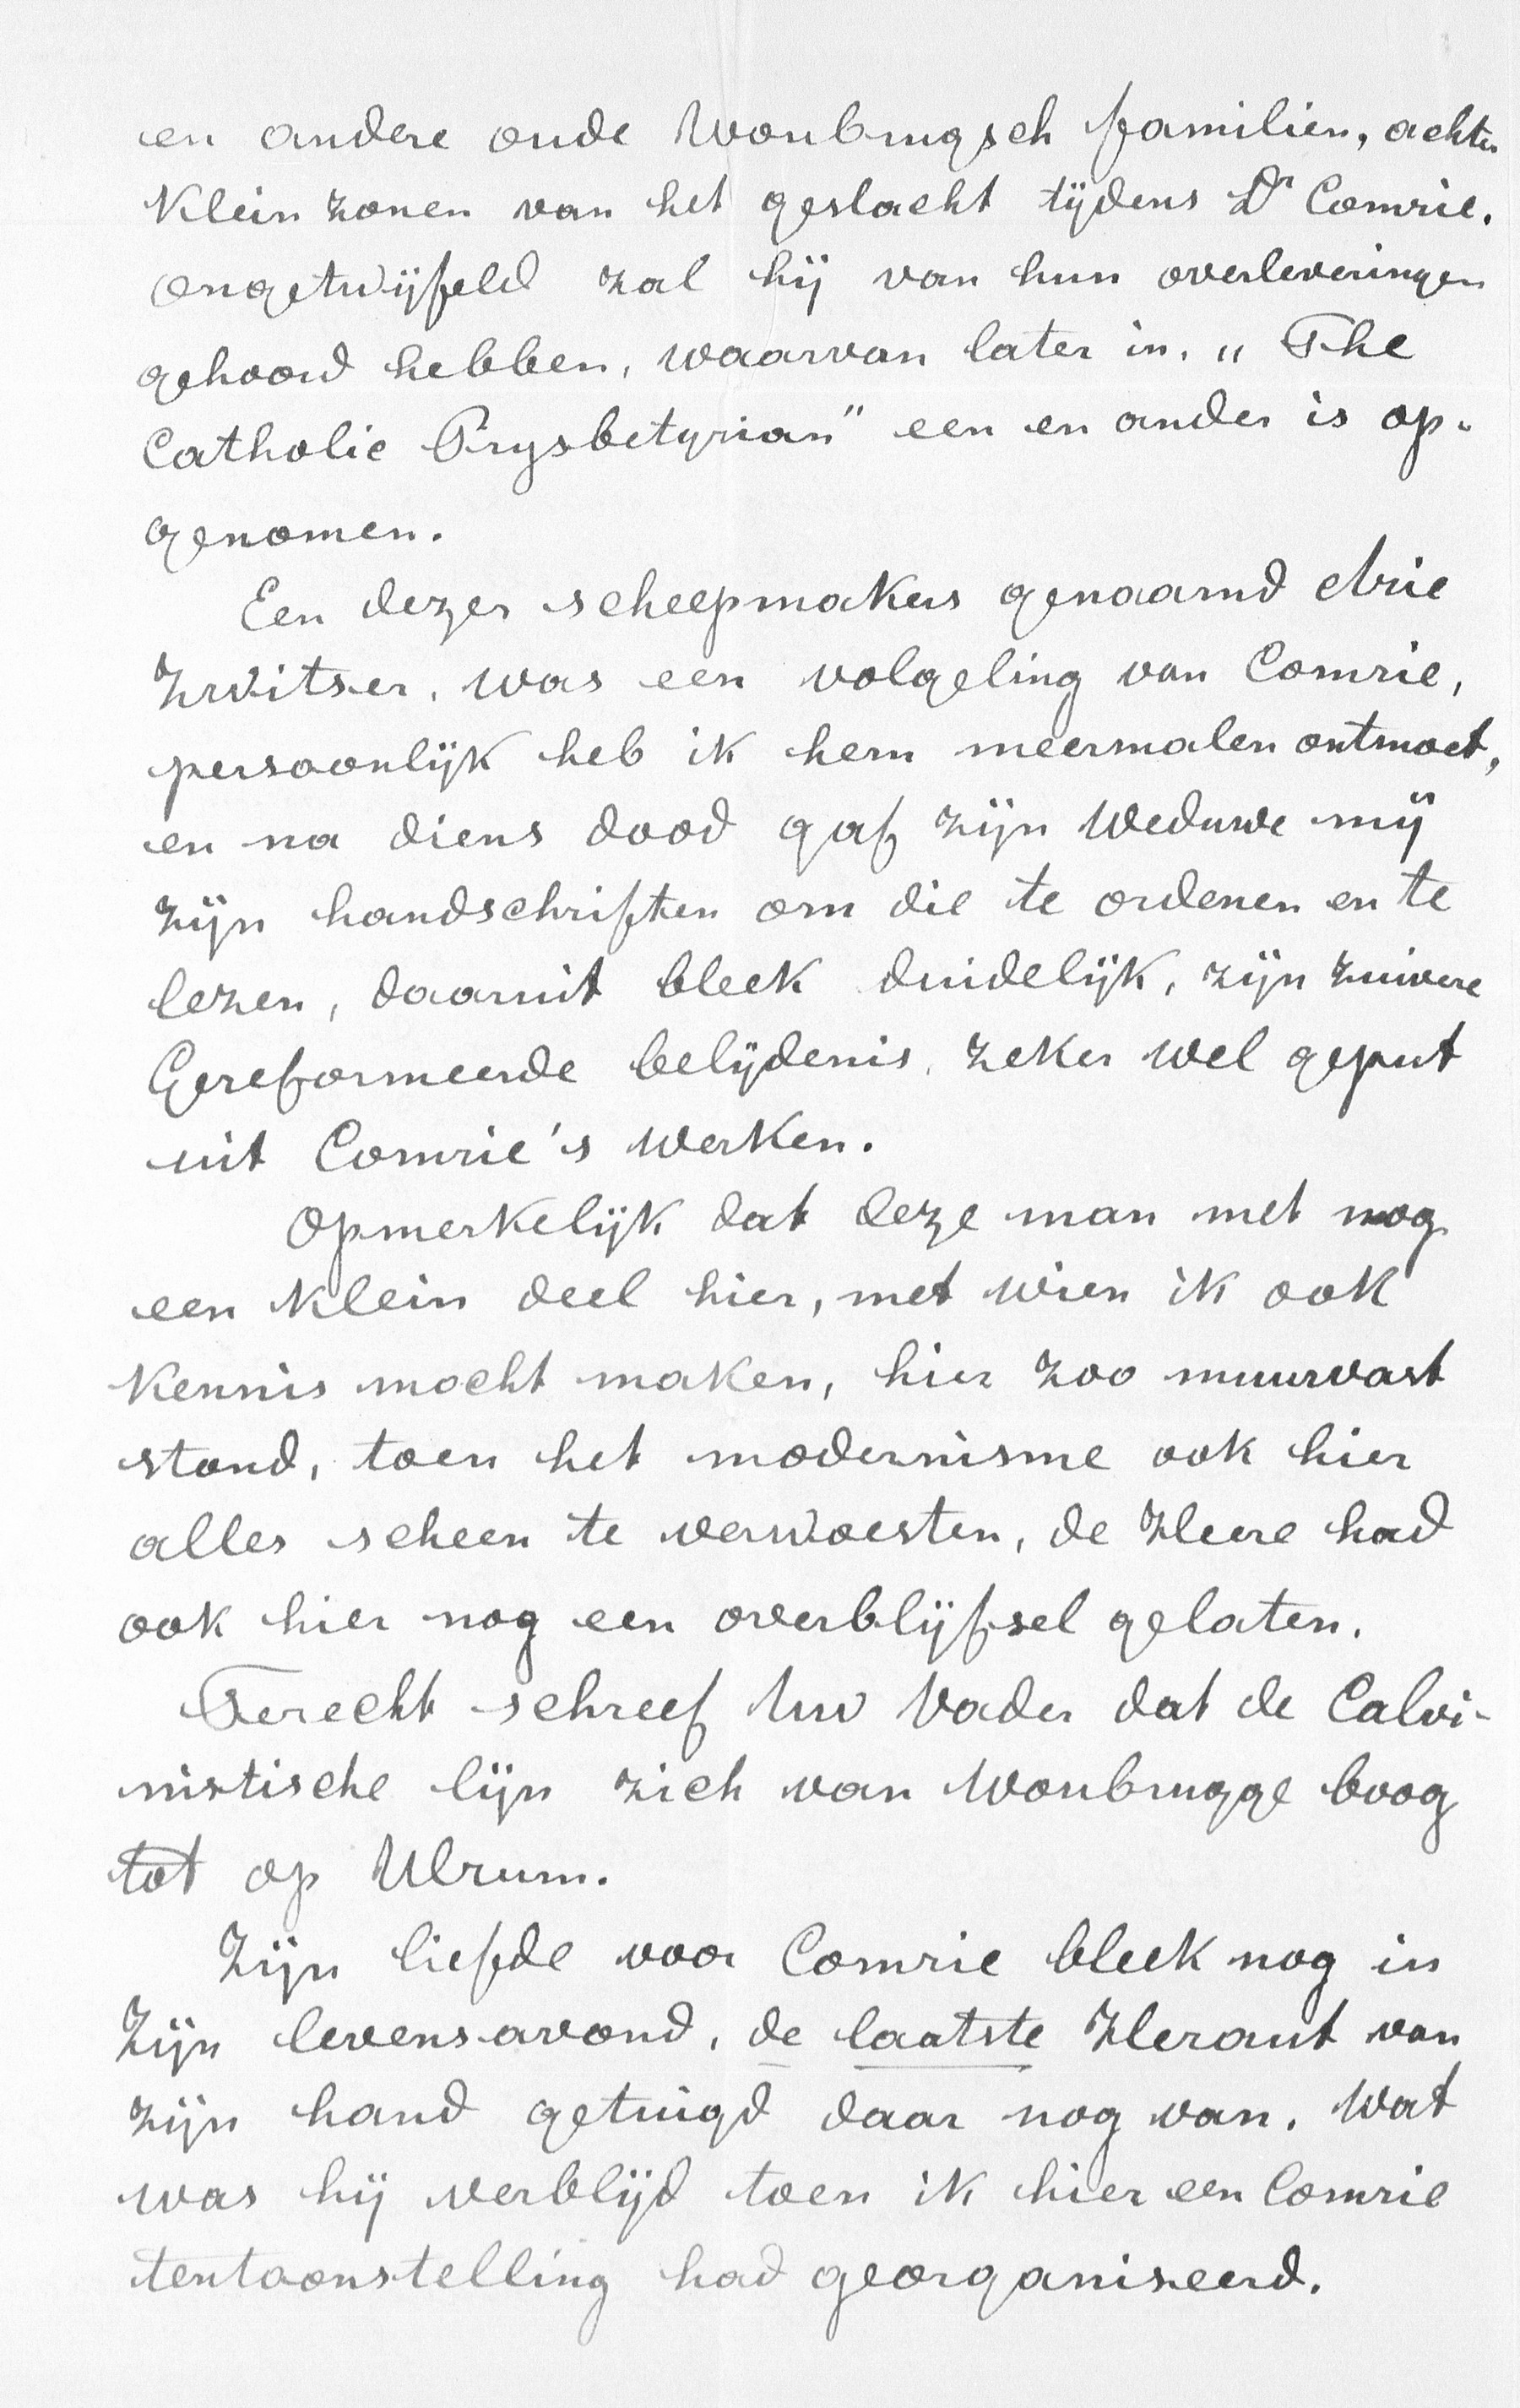 en andere oude Woubrugsch familien, achter
Klein zonen van het geslacht tijdens Dr Comrie.
ongetwijfeld zal hij van hun overleveringen
gehoord hebben, waarvan later in. „ The
Catholic Prysbetyrian" een en ander is op-
genomen.
Een dezer scheepmakers genaamd Arie
Zwitser, was een volgeling van Comrie,
persoonlijk heb ik hem meermalen ontmoet,
en na diens dood gaf zijn Weduwe mij
zijn handschriften om die te ordenen en te
lezen, daaruit bleek duidelijk, zijn zuivere
Gereformeerde belijdenis, zeker wel geput
uit Comrie's werken.
Opmerkelijk dat deze man met nog
een klein deel hier, met wien ik ook
kennis mocht maken, hier zoo muurvast
stond, toen het modernisme ook hier
alles scheen te verwoesten, de Heere had
ook hier nog een overblijfsel gelaten.
Terecht schreef Uw Vader dat de Calvi-
nistische lijn zich van Woubrugge boog
tot op Ulrum.
Zijn liefde voor Comrie bleek nog in
Zijn levensavond, de laatste Heraut van
zijn hand getuigd daar nog van. Wat
was hij verblijd toen ik hier een Comrie
tentoonstelling had georganiseerd.